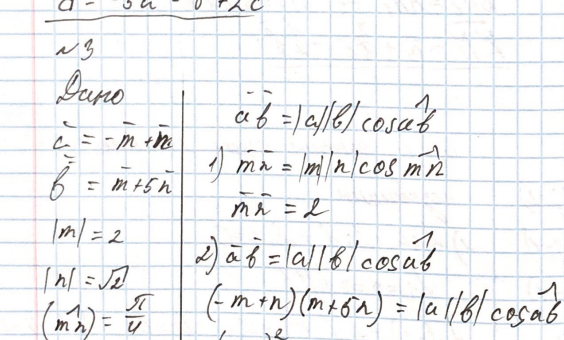 №3
Дано
ā = -m̄ + n̄
b̄ = m̄ + 5n̄
|m| = 2
|n| = √2
(m^n) = π/4
āb̄ = |a||b| cos a^b
1) m̄n̄ = |m||n| cos m^n
m̄n̄ = 2
2) āb̄ = |a||b| cos a^b
(-m+n)(m+5n) = |a||b| cos a^b